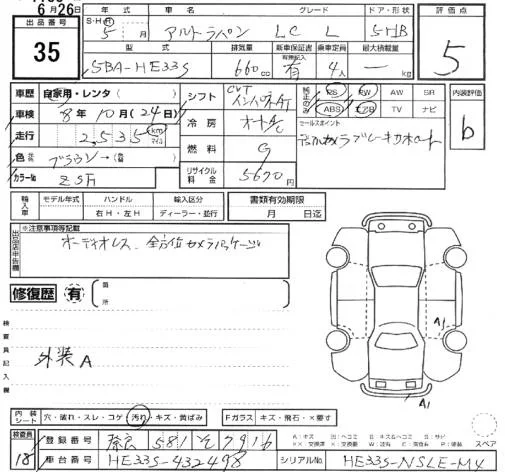 6月26日
出品番号 35
年式 S・H・R 5年 月 車名 アルトラパン グレード LC L ドア・形状 5HB 評価点 5
型式 5BA-HE33S 排気量 660cc 新車保証書 有無記入 有 乗車定員 4人 最大積載量 — kg
車歴 自家用・レンタ( )
シフト CVT インパネAT
純正のみ PS PW AW SR
ABS エアB TV ナビ
内装評価 b
車検 8年10月(24日)
走行 2,535 km マイル
冷房 オートAC
セールスポイント
色 ブラウン→( )
燃料 G
カラーNo ZSH
リサイクル料金 5670円
輸入車 モデル年式 ハンドル 右H・左H 輸入区分 ディーラー・並行 書類有効期限 月 日迄
出品店申告欄 ※注意事項等記載
オーディオレス 全方位カメラパッケージ
修復歴 有 箇所
検査員記入欄
外装A
A1
A1
内装シート 穴・破れ・スレ・コゲ・汚れ・キズ・黄ばみ Fガラス キズ・飛石・×要す
検査員 18
登録番号 581 そ 7916
A:キズ U:ヘコミ B:キズ&ヘコミ S:サビ
スペア
車台番号 HE33S-432498 シリアルNo HE33S-NSLE-M4